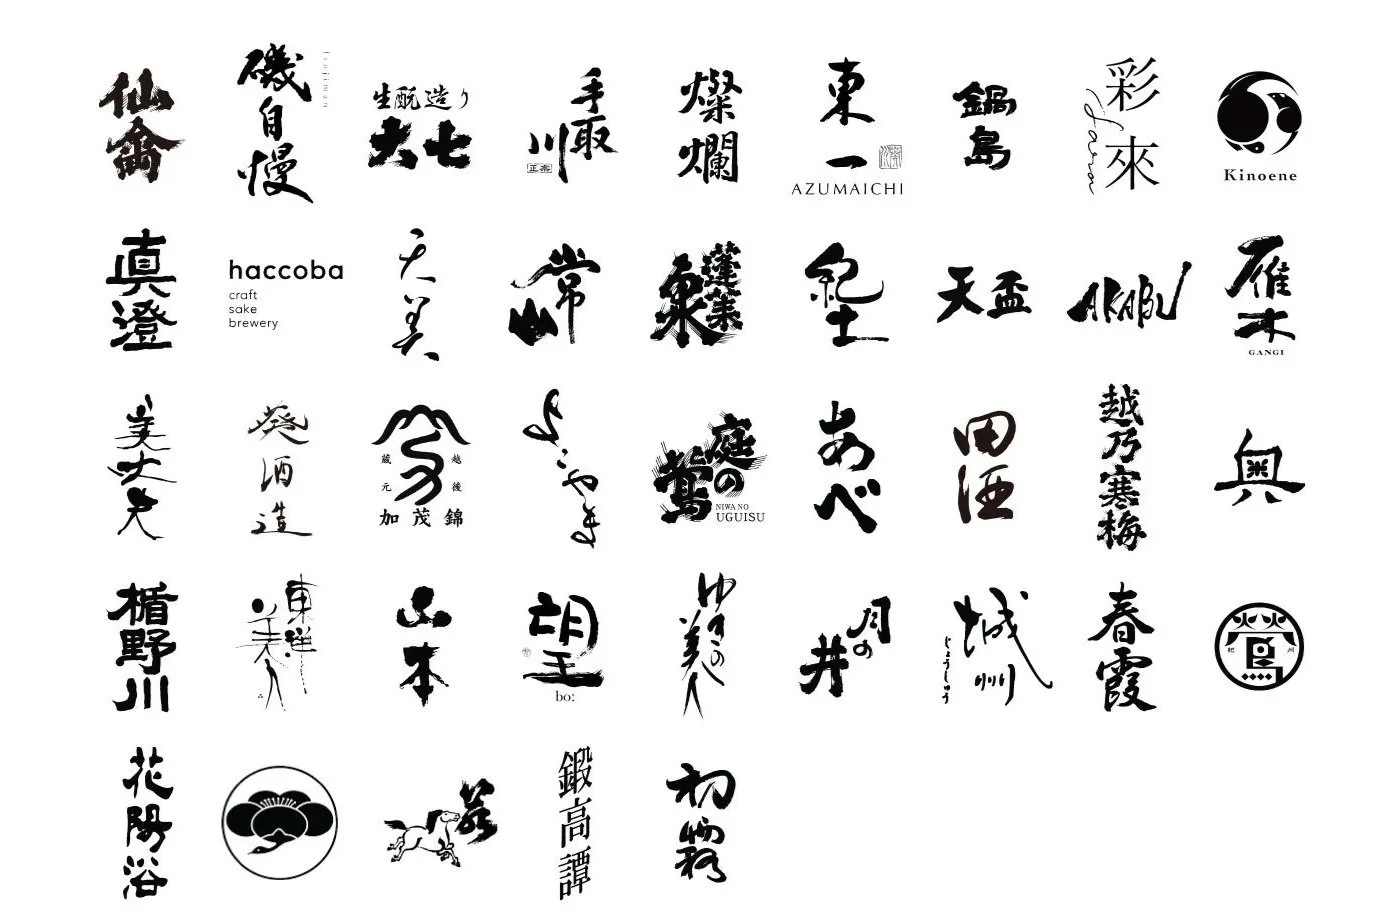 仙禽
磯自慢
Isojiman
生酛造り
大七
手取川
正宗
燦爛
東一
AZUMAICHI
鍋島
彩來
Sara
Kinoene
真澄
haccoba
craft
sake
brewery
天美
常山
蓬莱泉
紀土
天盃
AKABU
雁木
GANGI
美丈夫
葵酒造
越後
蔵元
加茂錦
よこやま
庭の鶯
NIWA NO
UGUISU
あべ
田酒
越乃寒梅
奥
楯野川
東洋美人
山本
望
bo:
ゆきの美人
月の井
城州
じょうしゅう
春霞
紀州
花陽浴
鍛高譚
初霧